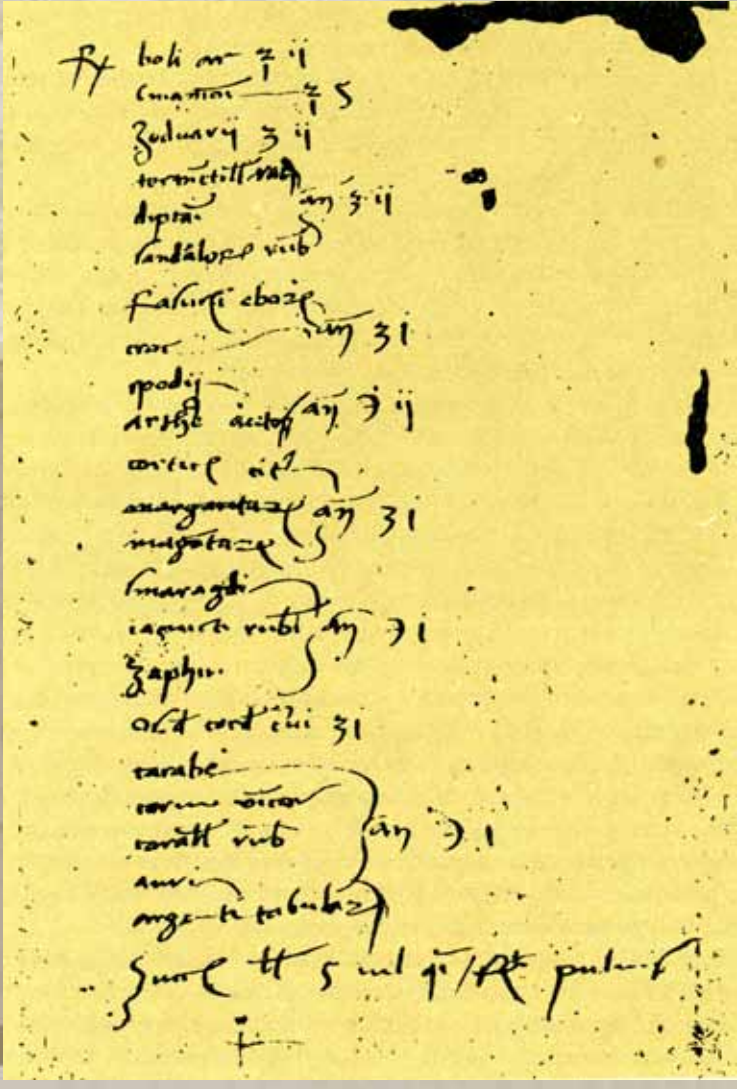 ℞ boli ar ℥ ij
Cinamōi ℥ s
Zeduarij ʒ ij
tormētill rad
diptāi añ ʒ ij
sandaloꝝ rub
rasure eboꝝ
croc añ ʒ i
spodij
acetos añ ℈ ij
cortic cit
margaritaꝝ añ ʒ i
smaragdi
iacincti rubi añ ℈ i
Zaphiri
Os d cord cui ʒ i
carabe
cornu
corall rub añ ℈ i
auri
argenti tabulaꝝ
Zucc lb s vel / pulu